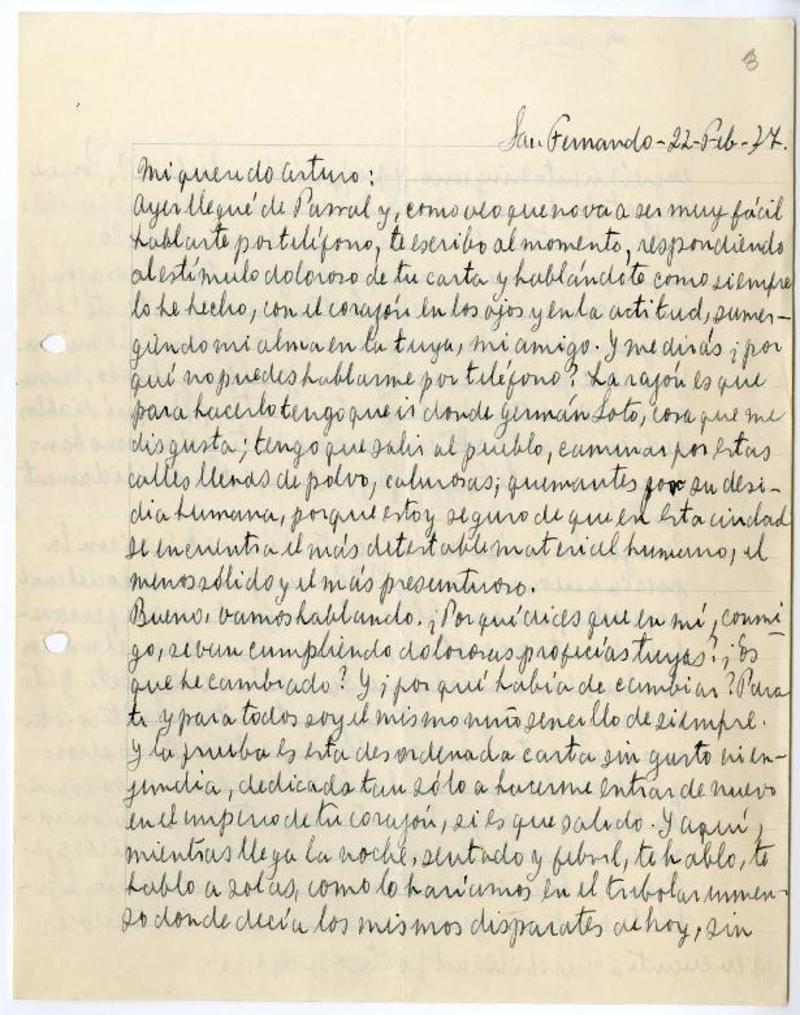 3
San Fernando-22-Feb-77.
Mi querido Arturo:
Ayer llegué de Parral y, como veo que no va a ser muy fácil
hablarte por teléfono, te escribo al momento, respondiendo
al estímulo doloroso de tu carta y hablándote como siempre
lo he hecho, con el corazón en los ojos y en la actitud, sumer-
giendo mi alma en la tuya, mi amigo. Y me dirás ¿por
qué no puedes hablarme por teléfono? La razón es que
para hacerlo tengo que ir donde Germán Soto, cosa que me
disgusta; tengo que salir al pueblo, caminar por estas
calles llenas de polvo, calurosas; quemantes por su desi-
dia humana, porque estoy seguro de que en esta ciudad
se encuentra el más detestable material humano, el
menos sólido y el más presuntuoso.
Bueno, vamos hablando. ¿Por qué dices que en mí, conmi-
go, se van cumpliendo dolorosas profecías tuyas? ¿Es
que he cambiado? Y ¿por qué había de cambiar? Para
ti y para todos soy el mismo niño sencillo de siempre.
Y la prueba es esta desordenada carta sin gusto ni en-
jundia, dedicada tan sólo a hacerme entrar de nuevo
en el imperio de tu corazón, si es que salido. Y aquí,
mientras llega la noche, sentado y febril, te hablo, te
hablo a solas, como lo haríamos en el trebolar inmen-
so donde decía los mismos disparates de hoy, sin